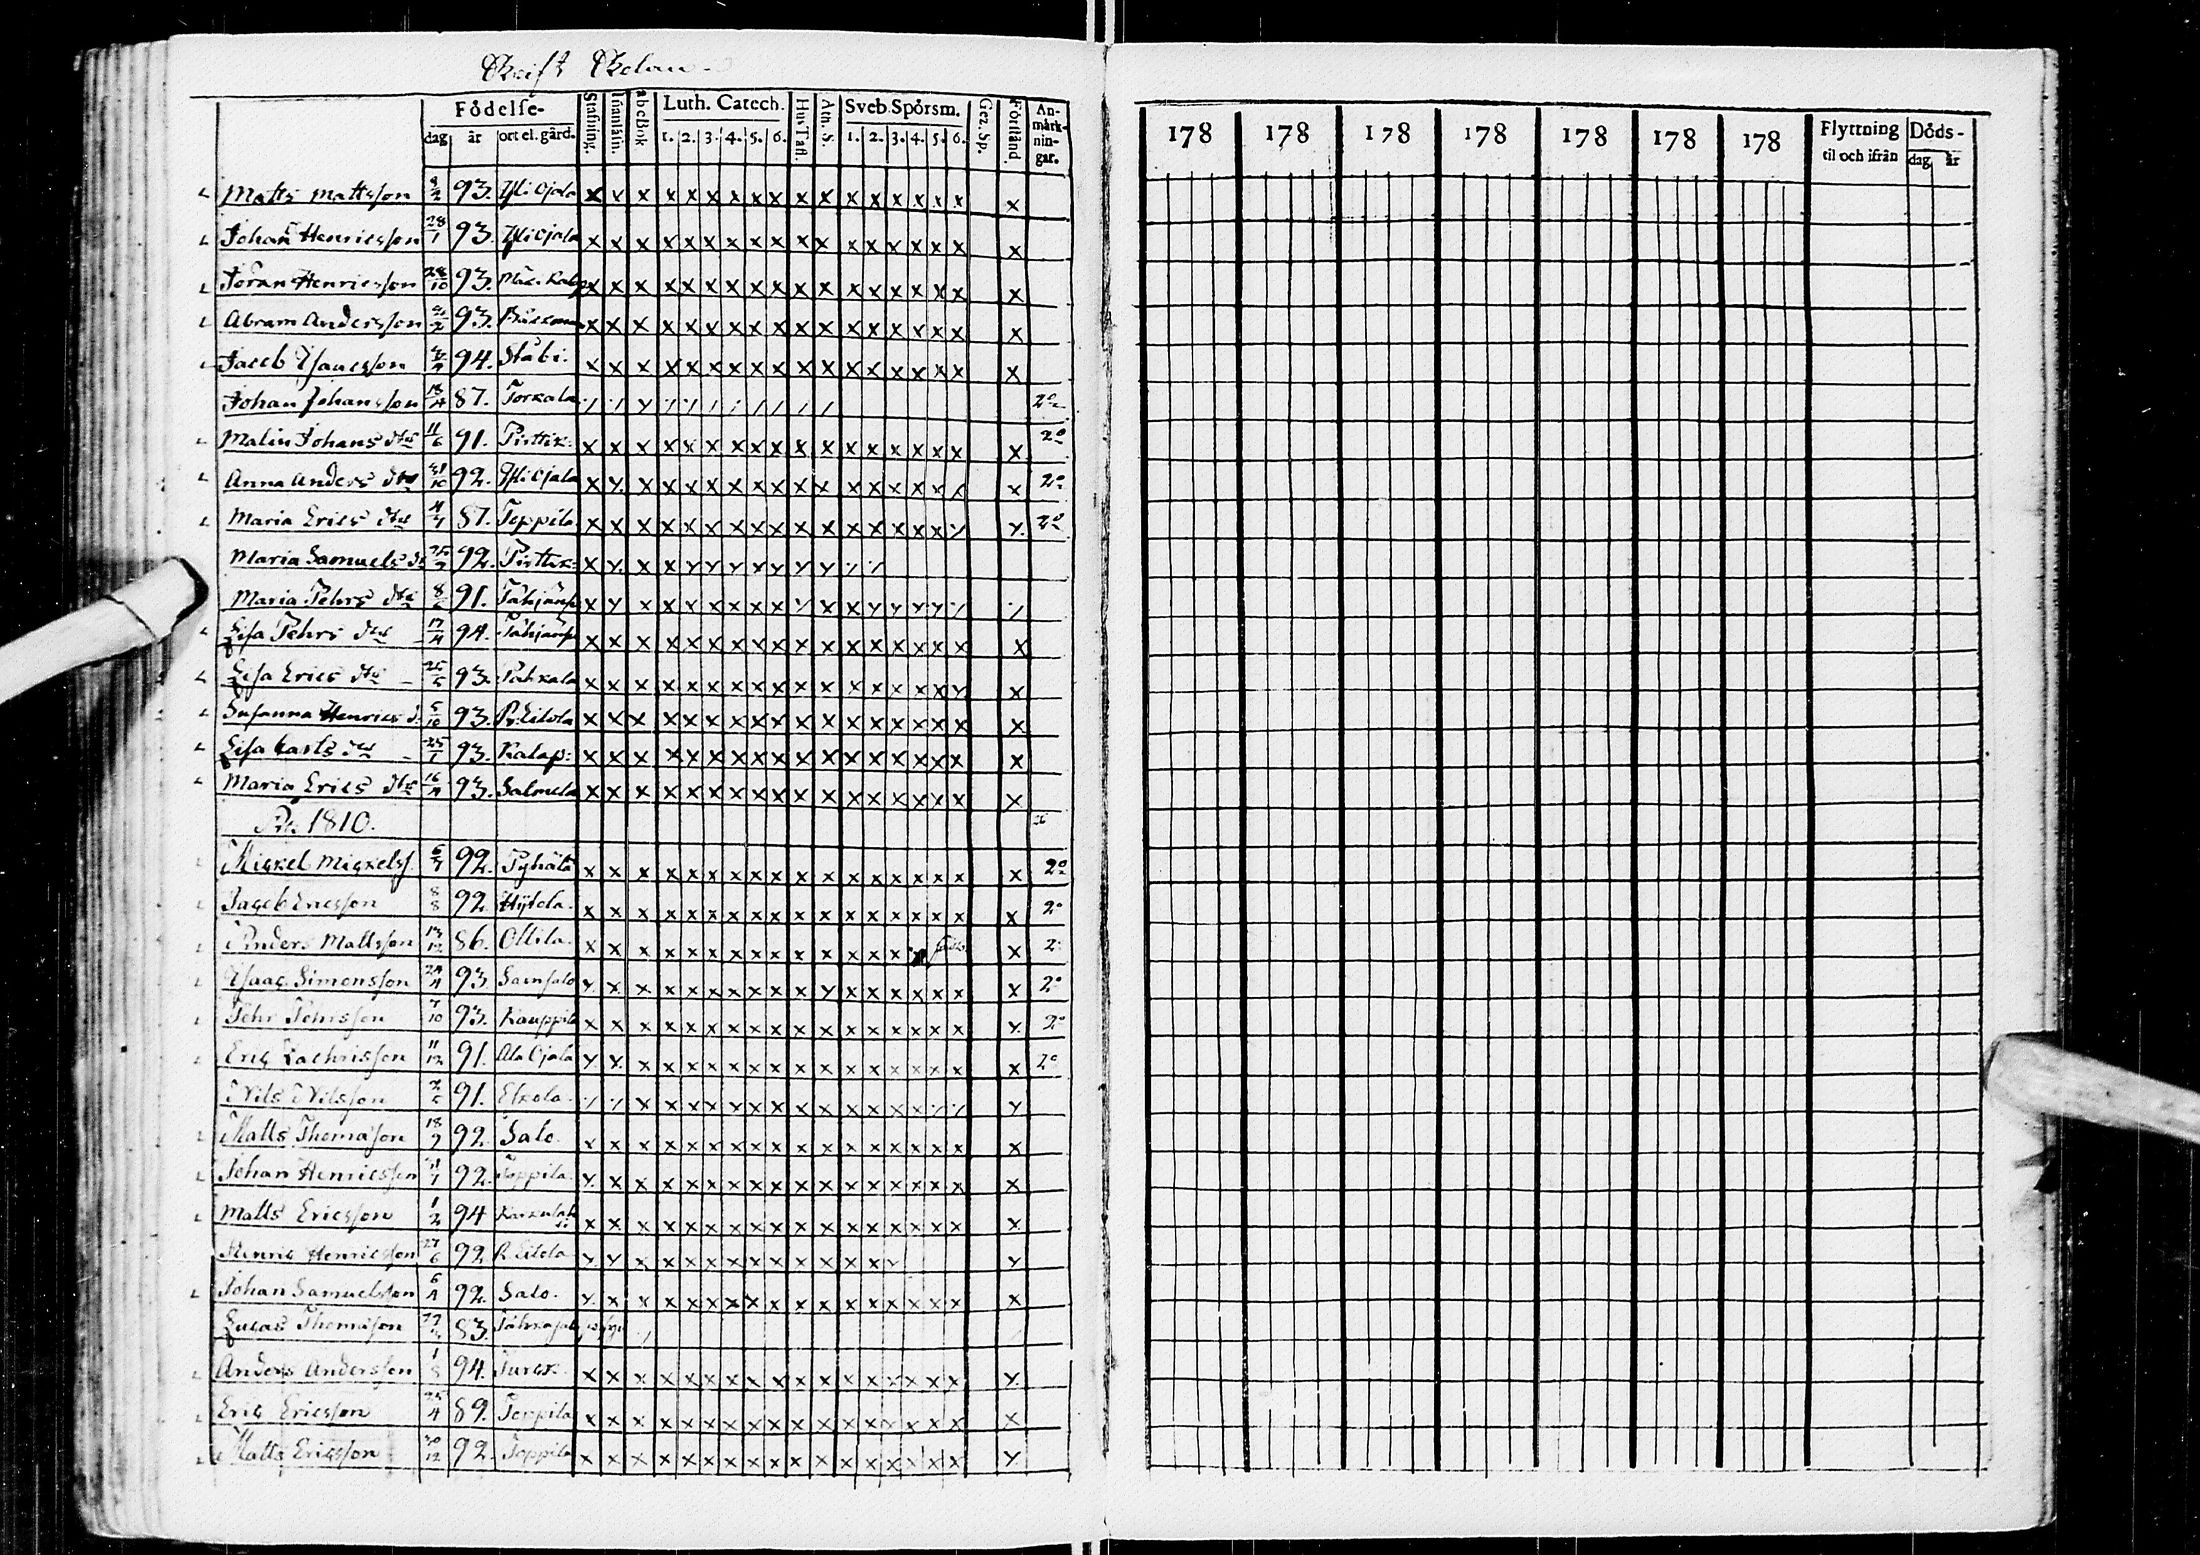 Skrift Skolan
Födelse- Stafning. Innanläsn. abcBok Luth. Catech. HusTafl. Ath. S. Sveb. Spörsm. Gez. Sp. Förstånd. An-märk-nin-gar.
dag år ort el. gård. 1. 2. 3. 4. 5. 6. 1. 2. 3. 4. 5. 6.
Matts Mattsson 93. Yliojala x x x x x x x x x x x x x x x x x x
Johan Henricsson 28/1 93. Yliojala x x x x x x x x x x x x x x x x x x
Jöran Henricsson 28/10 93. x x x x x x x x x x x x x x x x x x
Abram Andersson 93. x x x x x x x x x x x x x x x x x x
Jacob Isaacsson 94. Stabi. x x x x x x x x x x x x x x x x x x
Johan Johansson 87. Torkala 2o
Malin Johans dtr 11/6 91. Pirttik: x x x x x x x x x x x x x x x x x x 2o
Anna Anders dtr 31/10 92. Yliojala x x x x x x x x x x x x x x x x x x 2o
Maria Erics dtr 87. Toppila x x x x x x x x x x x x x x x x x x 2o
Maria Samuels d. 92. Pirttik:
Maria Pehrs dtr 91. Tähjänp
Lisa Pehrs dtr 17/4 94. Tähjänp x x x x x x x x x x x x x x x x x x
Lisa Erics dtr 93. x x x x x x x x x x x x x x x x x x
Susanna Henrics d. 5/10 93. R. Eitola x x x x x x x x x x x x x x x x x x
Lisa Carls dtr 25/1 93. Kalap: x x x x x x x x x x x x x x x x x x
Maria Erics dtr 16/4 93. Salmela x x x x x x x x x x x x x x x x x x
1810.
Mickel Mickelss. 92. Pyhält x x x x x x x x x x x x x x x x x x 2o
Jacob Ericsson 8/8 92. Hÿtola. x x x x x x x x x x x x x x x x x x 2o
Anders Mattsson 13/12 86. Ollila. x x x x x x x x x x x x x x x 2
Isaac Simonsson 24/4 93. Samsalo x x x x x x x x x x x x x x x x x x 2o
Pehr Pehrsson 7/10 93. Kauppila x x x x x x x x x x x x x x x x x x 2o
Eric Zachrisson 11/12 91. Ala Ojala x x x x x x x x x x x x x x x x x x 2o
Nils Nilsson 91. Elkola.
Matts Thomasson 92. Salo. x x x x x x x x x x x x x x x x x x
Johan Henricsson 31/1 92. Toppila. x x x x x x x x x x x x x x x x x x
Matts Ericsson 1/2 94 x x x x x x x x x x x x x x x x x x
Henric Henricsson 27/6 92 R. Eitola
Johan Samuelsson 6/4 92. Salo. x x x x x x x x x x x x x x x x x x
Lucas Thomasson 83.
Anders Andersson 1/8 94. x x x x x x x x x x x x x x x x x x
Eric Ericsson 25/4 89. Toppila x x x x x x x x x x x x x x x x x x
Matts Ericsson 30/12 92. Toppila x x x x x x x x x x x x x x x x x x
178 178 178 178 178 178 178 Flyttning til och ifrån Döds-
dag år